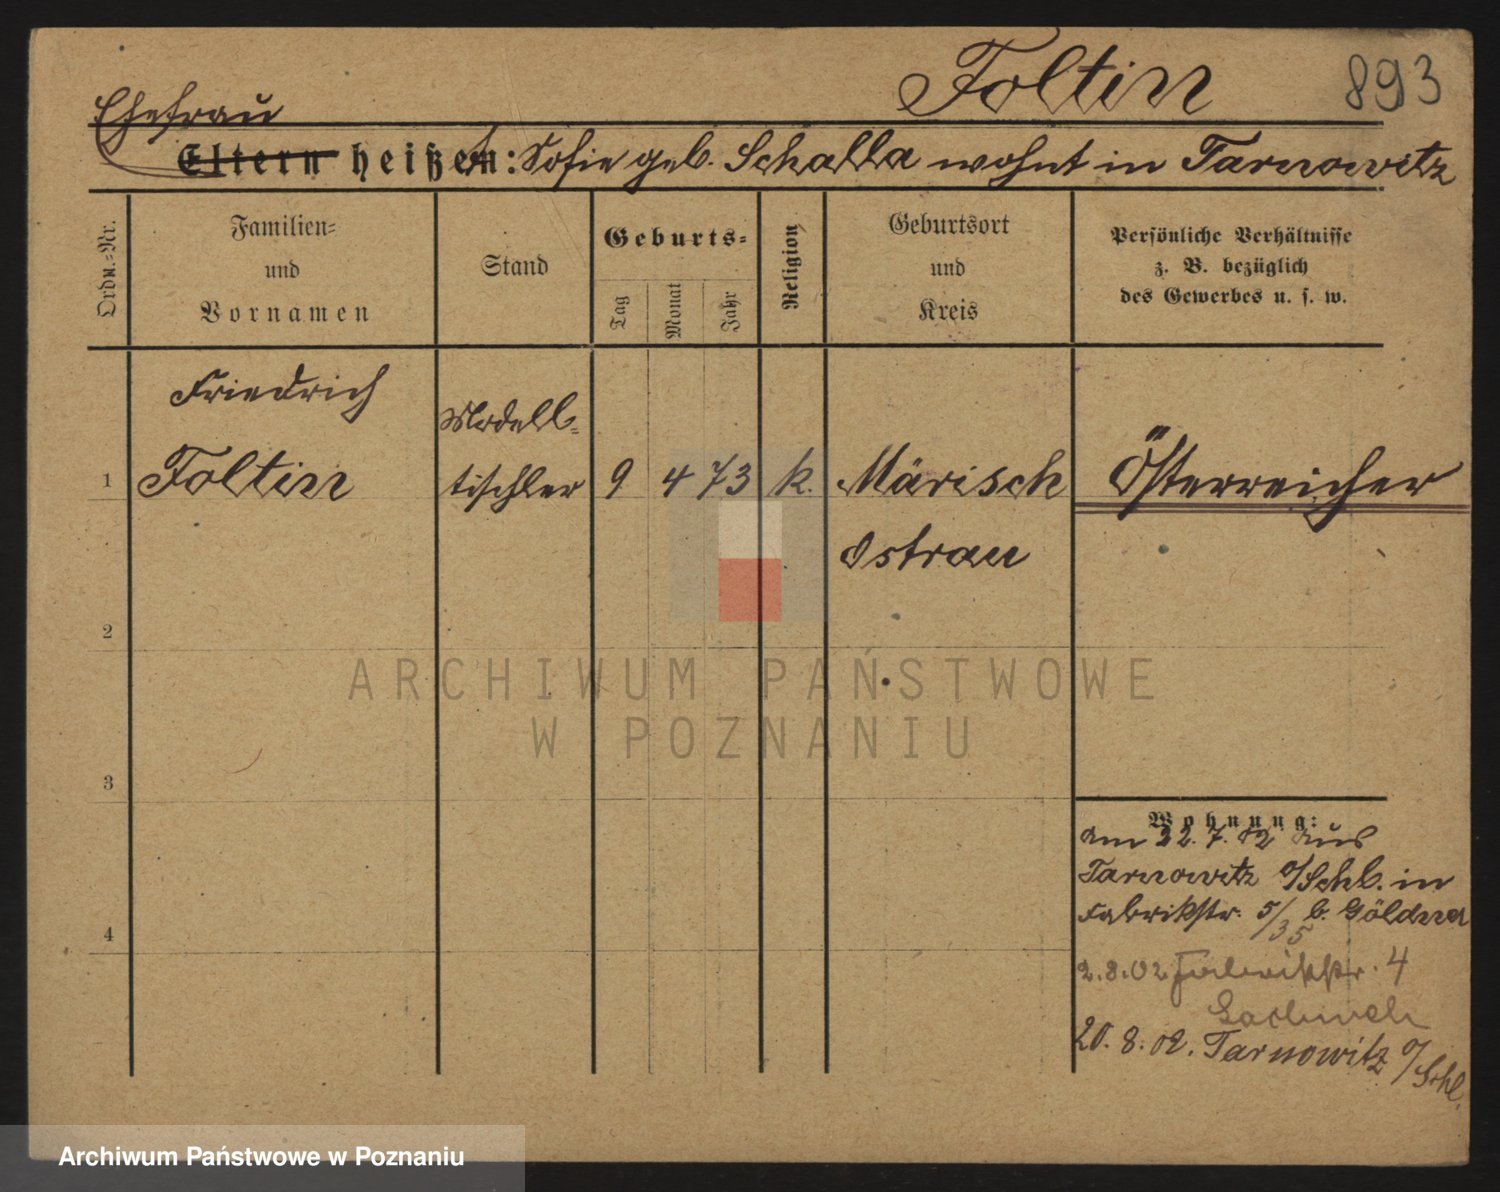 Foltin 893
Ehefrau
Eltern heißen: Sofie geb. Schalla wohnt in Tarnowitz
Ordn.-Nr.
Familien-
und
Vornamen
Stand
Geburts-
Tag
Monat
Jahr
Religion
Geburtsort
und
Kreis
Persönliche Verhältnisse
z. B. bezüglich
des Gewerbes u. s. w.
Friedrich
Modell-
1 Foltin tischler 9 4 73 k. Märisch Österreicher
Ostrau
2
ARCHIWUM PAŃSTWOWE
W POZNANIU
3
Wohnung:
am 22.7.02 aus
Tarnowitz O/Schl. in
Fabrikstr. 5/35 b. Göldner
4
2.8.02 Fabrikstr. 4
20.8.02. Tarnowitz O/Schl.
Archiwum Państwowe w Poznaniu